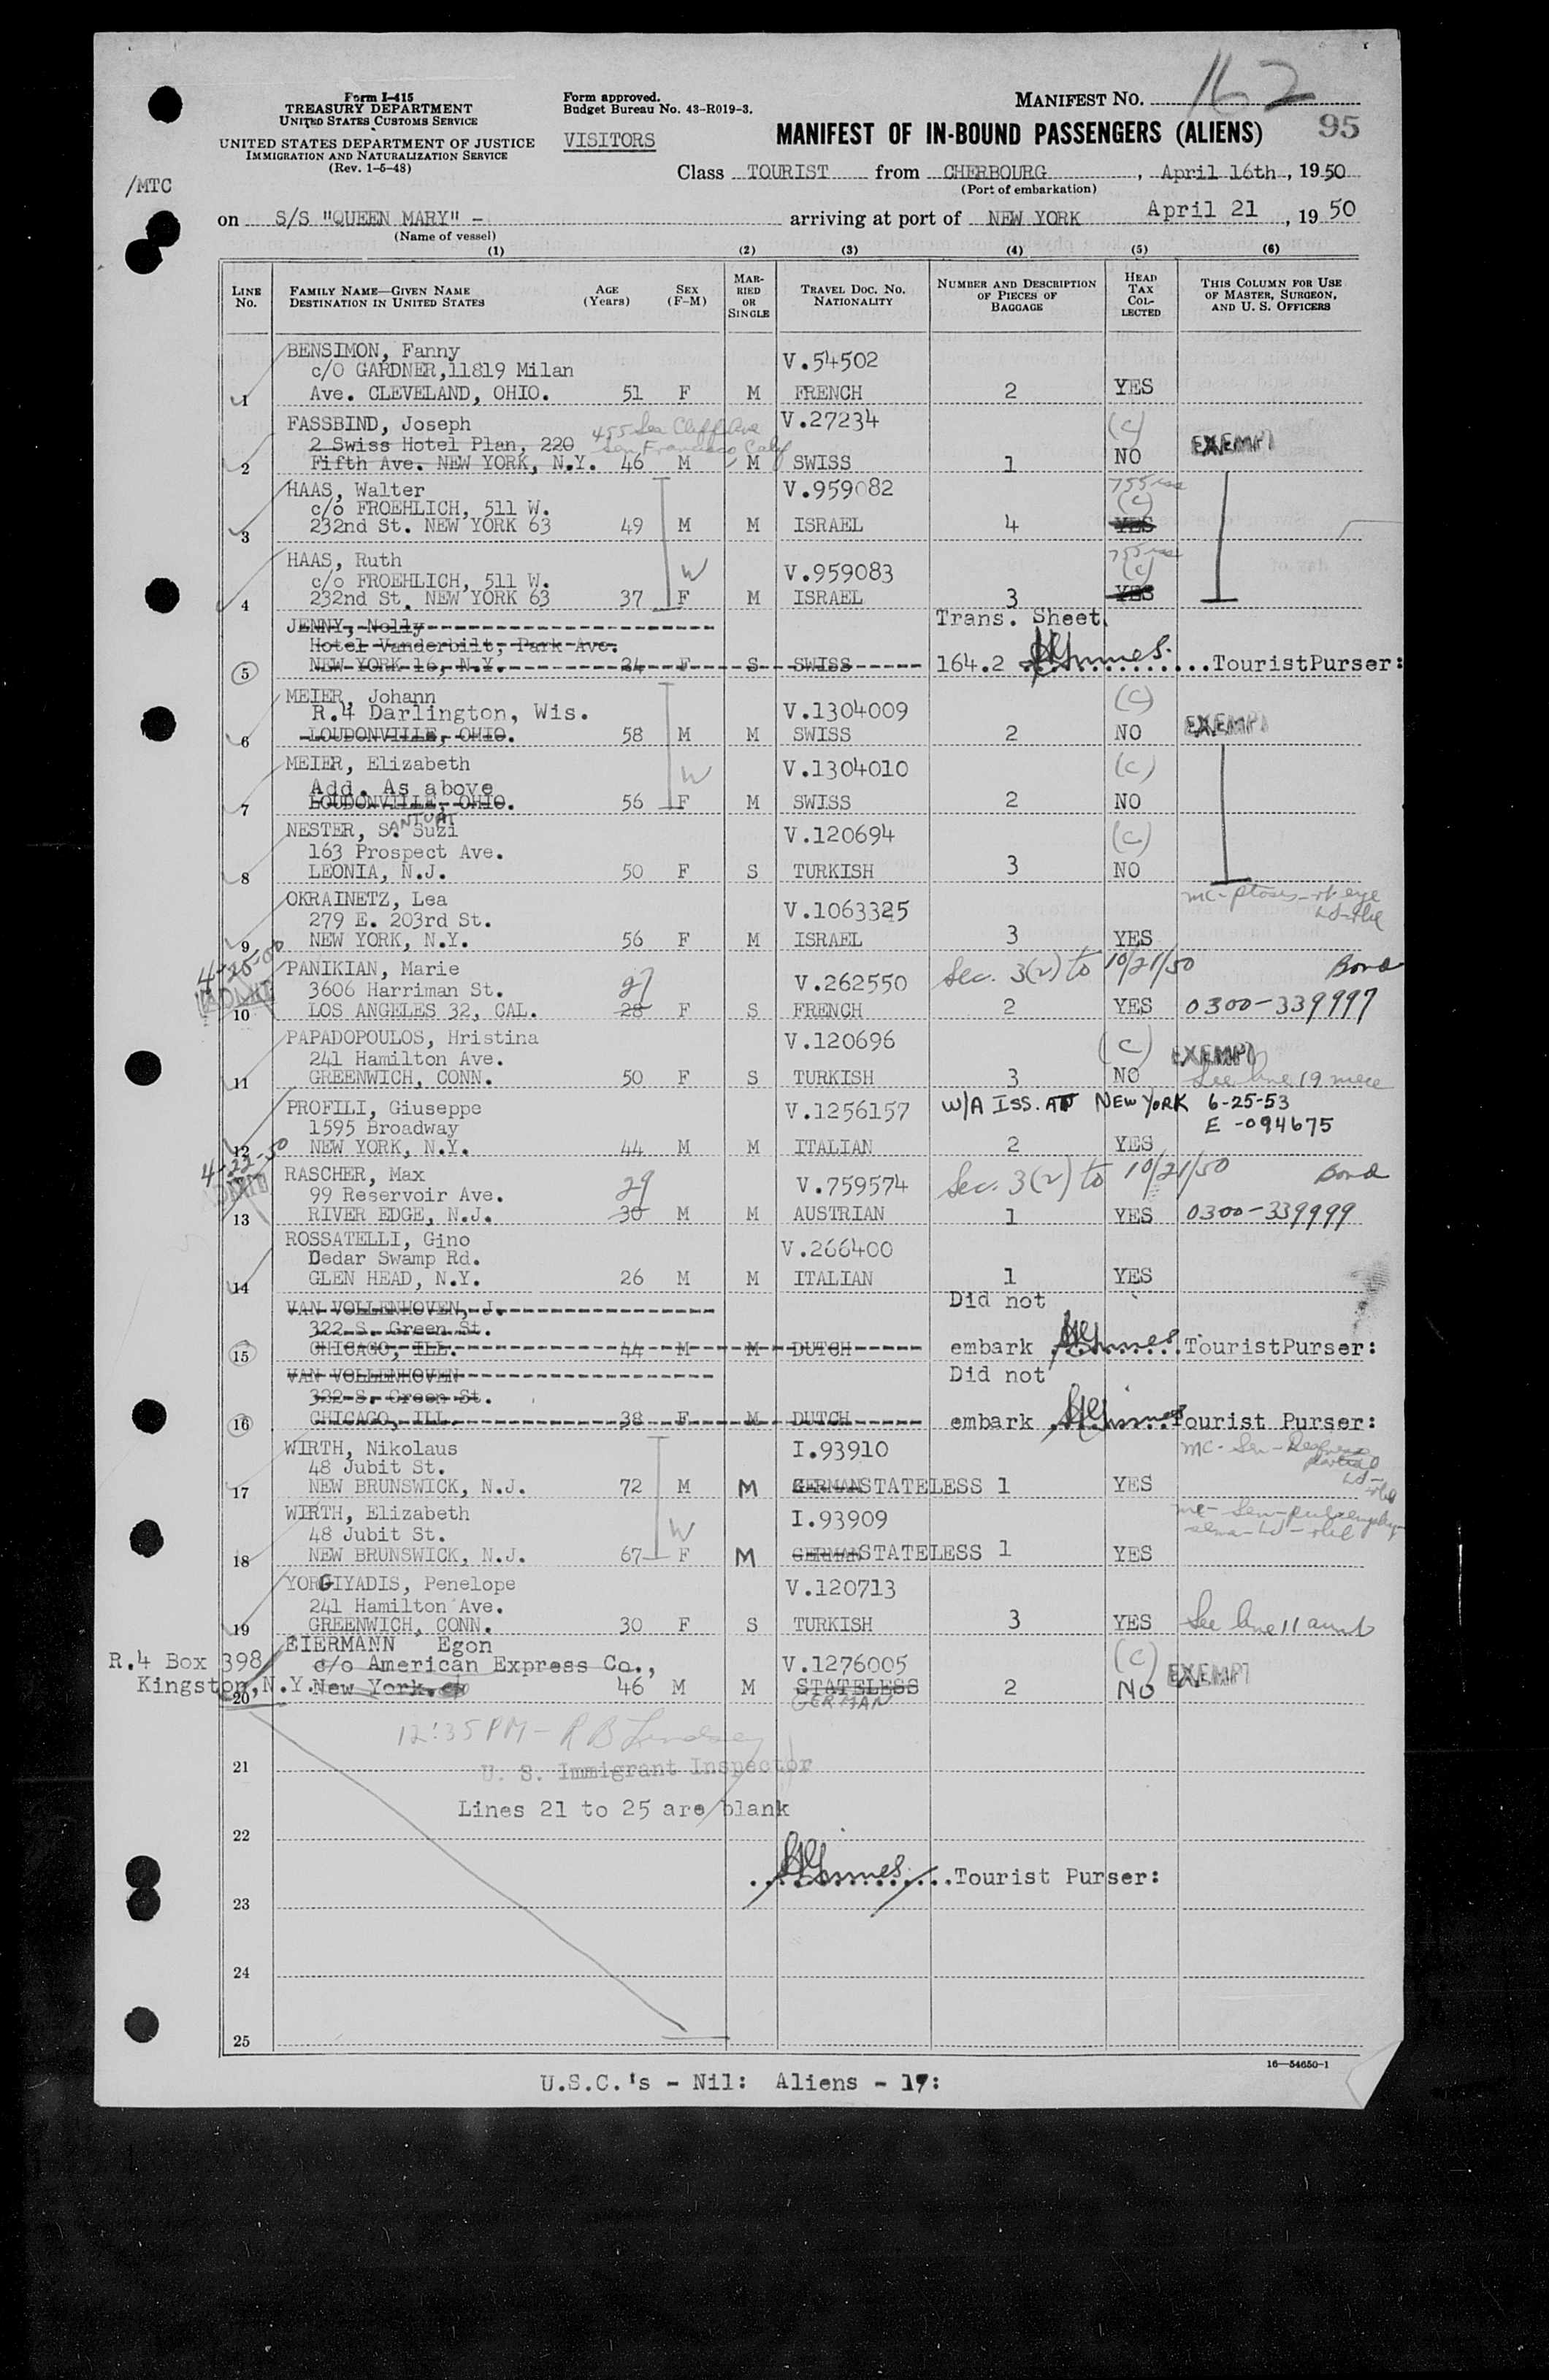 162
Form I-415
TREASURY DEPARTMENT
UNITED STATES CUSTOMS SERVICE
UNITED STATES DEPARTMENT OF JUSTICE
IMMIGRATION AND NATURALIZATION SERVICE
(Rev. 1-5-48)
Form approved.
Budget Bureau No. 43-R019-3.
VISITORS
MANIFEST NO.
95
MANIFEST OF IN-BOUND PASSENGERS (ALIENS)
/MTC
Class TOURIST from CHERBOURG, April 16th, 1950
(Port of embarkation)
on S/S "QUEEN MARY" - arriving at port of NEW YORK April 21, 1950
(Name of vessel)
(1) (2) (3) (4) (5) (6)
LINE NO. FAMILY NAME—GIVEN NAME DESTINATION IN UNITED STATES AGE (Years) SEX (F-M) MARRIED OR SINGLE TRAVEL DOC. NO. NATIONALITY NUMBER AND DESCRIPTION OF PIECES OF BAGGAGE HEAD TAX COLLECTED THIS COLUMN FOR USE OF MASTER, SURGEON, AND U. S. OFFICERS
BENSIMON, Fanny V.54502
c/O GARDNER, 11819 Milan
1 Ave. CLEVELAND, OHIO. 51 F M FRENCH 2 YES
FASSBIND, Joseph 455 Sea Cliff Ave V.27234 (C)
2 Swiss Hotel Plan, 220 San Francisco Calif EXEMPT
2 Fifth Ave. NEW YORK, N.Y. 46 M M SWISS 1 NO
HAAS, Walter V.959082
c/o FROEHLICH, 511 W. (C)
3 232nd St. NEW YORK 63 49 M M ISRAEL 4 YES
HAAS, Ruth
c/o FROEHLICH, 511 W. W V.959083 (C)
4 232nd St. NEW YORK 63 37 F M ISRAEL 3 YES
JENNY, Nelly Trans. Sheet
Hotel Vanderbilt, Park Ave.
5 NEW YORK 16, N.Y. 24 F S SWISS 164.2 TouristPurser:
MEIER, Johann (C)
R.4 Darlington, Wis. V.1304009 EXEMPT
6 LOUDONVILLE, OHIO. 58 M M SWISS 2 NO
MEIER, Elizabeth W V.1304010 (C)
Add. As above
7 LOUDONVILLE, OHIO. 56 F M SWISS 2 NO
ANTOAT
NESTER, S. Suzi V.120694 (C)
163 Prospect Ave.
8 LEONIA, N.J. 50 F S TURKISH 3 NO
OKRAINETZ, Lea V.1063325 mc-ptosis-rt eye
279 E. 203rd St.
9 NEW YORK, N.Y. 56 F M ISRAEL 3 YES
4-25-50
PANIKIAN, Marie 27 V.262550 Sec. 3(2) to 10/21/50 Bond
3606 Harriman St.
10 LOS ANGELES 32, CAL. 28 F S FRENCH 2 YES 0300-339997
PAPADOPOULOS, Hristina V.120696 (C) EXEMPT
241 Hamilton Ave.
11 GREENWICH, CONN. 50 F S TURKISH 3 NO See line 19 niece
PROFILI, Giuseppe V.1256157 W/A ISS. AT NEW YORK 6-25-53
1595 Broadway E-094675
12 NEW YORK, N.Y. 44 M M ITALIAN 2 YES
4-22-50
RASCHER, Max 29 V.759574 Sec. 3(2) to 10/21/50 Bond
99 Reservoir Ave.
13 RIVER EDGE, N.J. 30 M M AUSTRIAN 1 YES 0300-339999
ROSSATELLI, Gino V.266400
Dedar Swamp Rd.
14 GLEN HEAD, N.Y. 26 M M ITALIAN 1 YES
VAN VOLLENHOVEN, J. Did not
322 S. Green St.
15 CHICAGO, ILL. 44 M M DUTCH embark TouristPurser:
VAN VOLLENHOVEN Did not
322 S. Green St.
16 CHICAGO, ILL. 38 F M DUTCH embark Tourist Purser:
WIRTH, Nikolaus I.93910 mc-Sen-Deafness
48 Jubit St. partial
17 NEW BRUNSWICK, N.J. 72 M M GERMAN STATELESS 1 YES
WIRTH, Elizabeth W I.93909
48 Jubit St.
18 NEW BRUNSWICK, N.J. 67 F M GERMAN STATELESS 1 YES
YORGIYADIS, Penelope V.120713
241 Hamilton Ave.
19 GREENWICH, CONN. 30 F S TURKISH 3 YES See line 11 aunt
EIERMANN, Egon (C)
R.4 Box 398 c/o American Express Co., V.1276005 EXEMPT
Kingston, N.Y. New York. 46 M M STATELESS 2 NO
20 GERMAN
12:35 PM - R B Lindsay
21 U. S. Immigrant Inspector
Lines 21 to 25 are blank
22
Tourist Purser:
23
24
25
16—54650-1
U.S.C.'s - Nil: Aliens - 17: